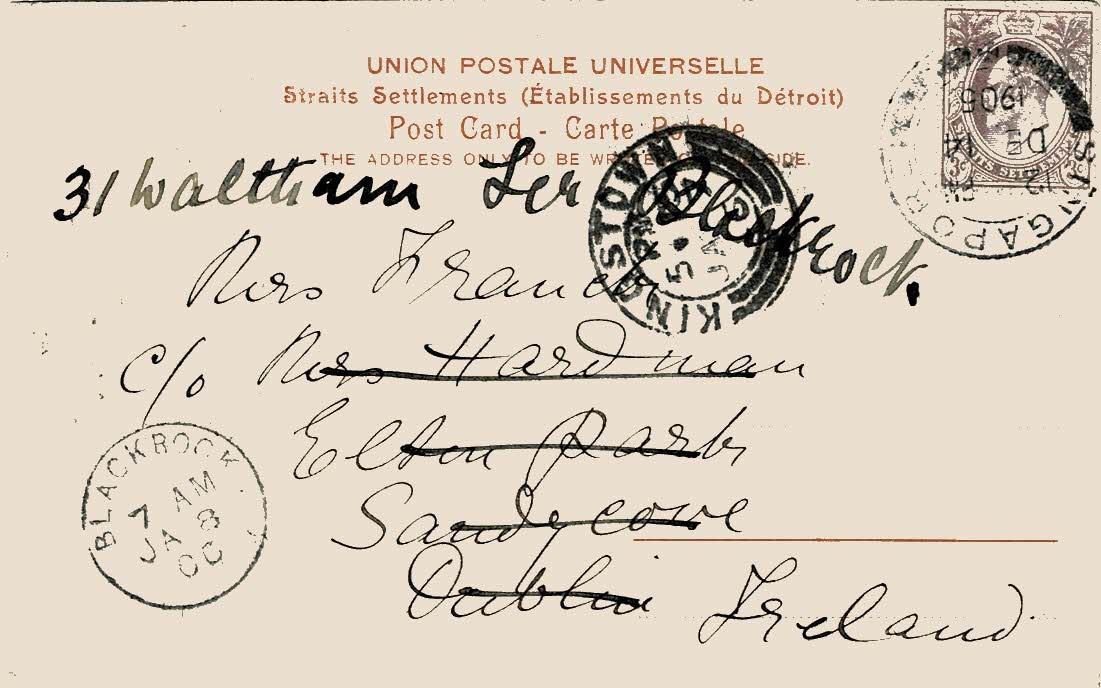 UNION POSTALE UNIVERSELLE
Straits Settlements (Établissements du Détroit)
Post Card - Carte Postale
THE ADDRESS ONLY TO BE WRITTEN ON THIS SIDE.
SINGAPORE
12 PM
DE 14
1905
31 Waltham Ter Blackrock.
KINGSTOWN
JA
Mrs Franck
c/o Mrs Hardman
Elton Park
Sandycove
Dublin Ireland
BLACKROCK
7 AM
JA 8